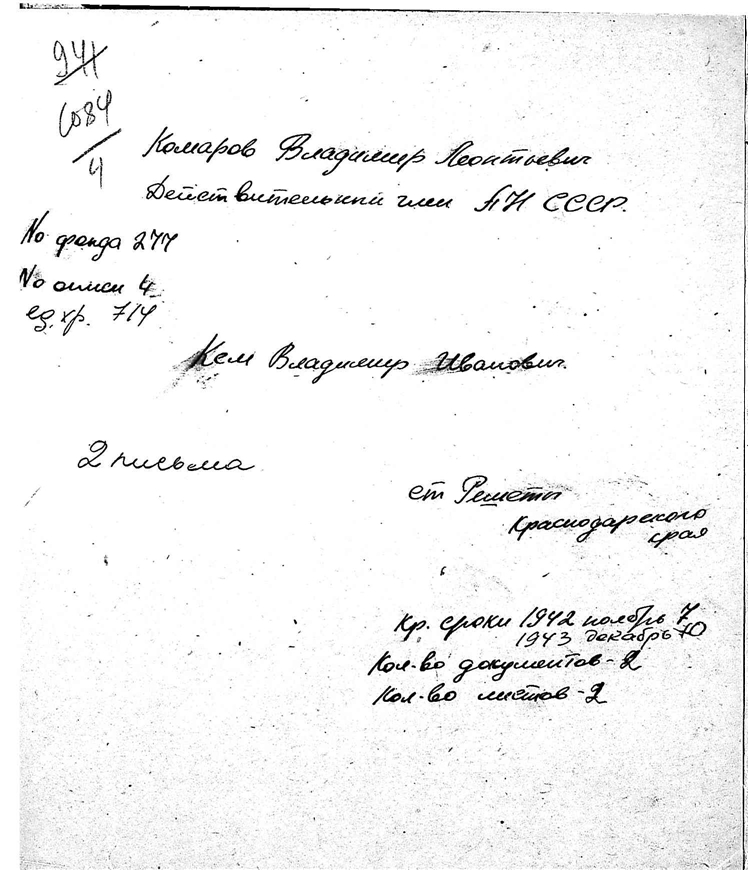 941
1084
4
Комаров Владимир Леонтьевич
Действительный член АН СССР.
№ фонда 277
№ описи 4
ед. хр. 714
Кем Владимир Иванович.
2 письма
ст Решеты
Краснодарского
края
Кр. сроки 1942 ноябрь 7
1943 декабрь 10
Кол-во документов - 2
Кол-во листов - 2